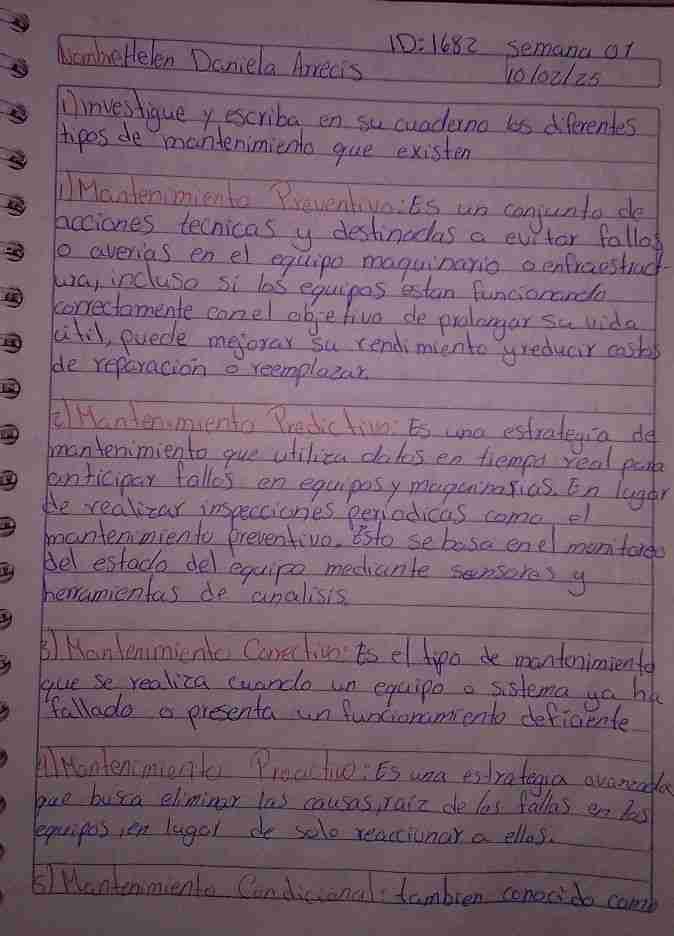 ID:1682 semana 01
Nombre Helen Daniela Arrecis 10/02/25
1) investigue y escriba en su cuaderno los diferentes
tipos de mantenimiento que existen
1) Mantenimiento Preventivo: Es un conjunto de
acciones tecnicas y destinadas a evitar fallos
o averias en el equipo maquinario o enfraestruct-
ura, incluso si los equipos estan funcionando
correctamente con el objetivo de prolongar su vida
útil, puede mejorar su rendimiento y reducir costos
de reparación o reemplazar.
2) Mantenimiento Predictivo: Es una estrategia de
mantenimiento que utiliza datos en tiempo real para
anticipar fallos en equipos y maquinarias. En lugar
de realizar inspecciones periodicas como el
mantenimiento preventivo. Esto se basa en el monitoreo
del estado del equipo mediante sensores y
herramientas de analisis.
3) Mantenimiento Correctivo: Es el tipo de mantenimiento
que se realiza cuando un equipo o sistema ya ha
fallado o presenta un funcionamiento deficiente
4) Mantenimiento Proactivo: Es una estrategia avanzada
que busca eliminar las causas, raíz de las fallas en los
equipos, en lugar de solo reaccionar a ellos.
5) Mantenimiento Condicional: tambien conocido como